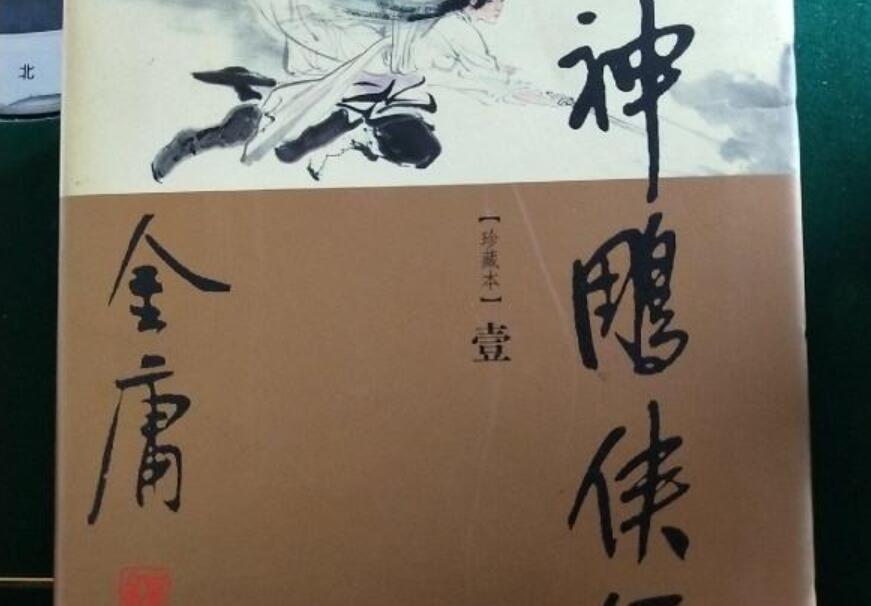 神鵰侠
【珍藏本】壹
金庸
北